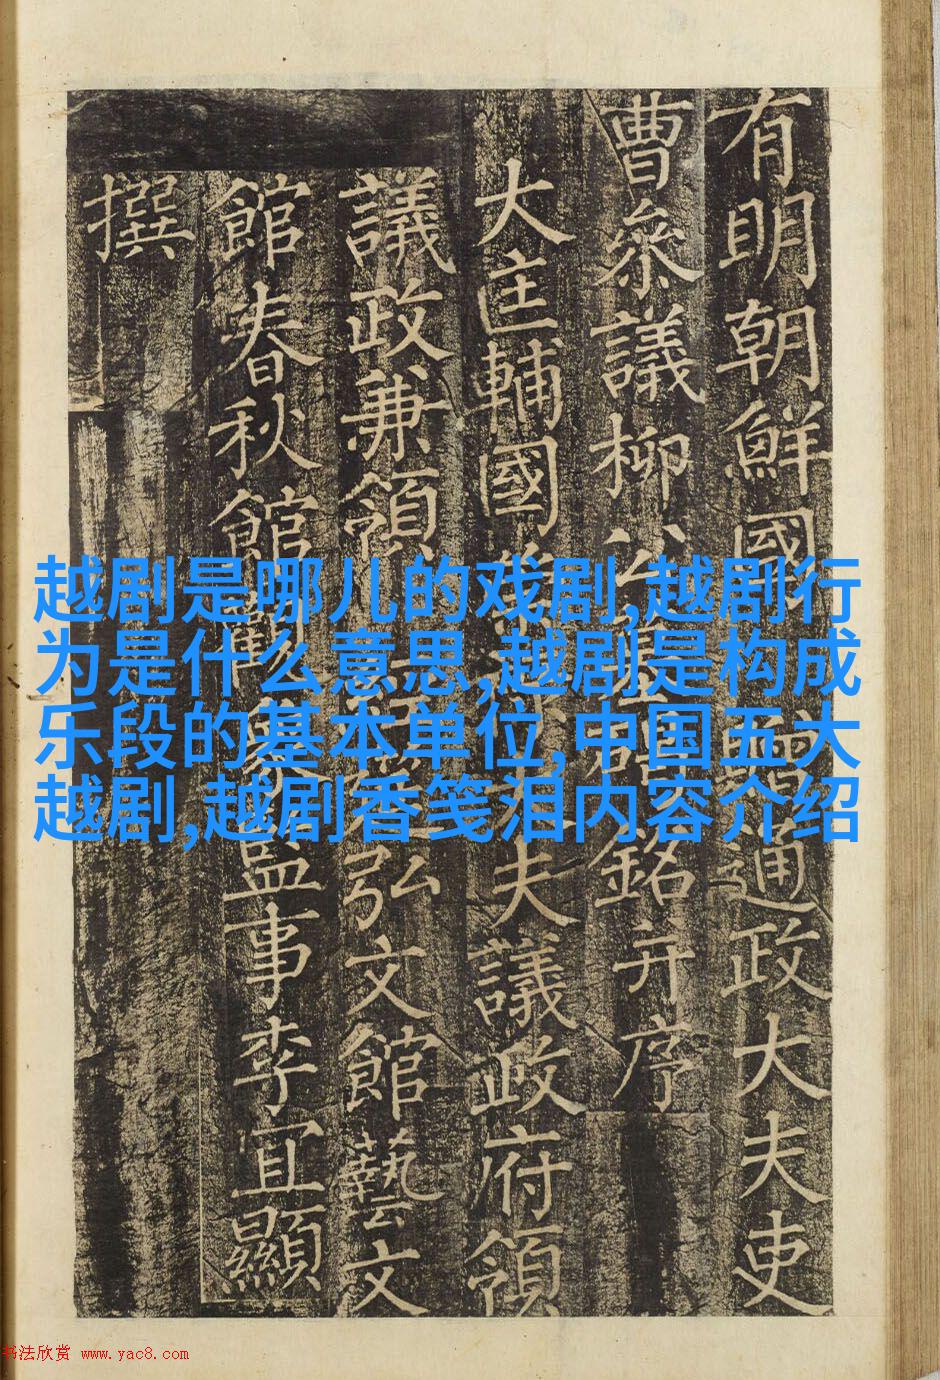 有明朝鮮國通政大夫吏
曹叅議柳公銘并序
大匡輔國夫議政府領
議政兼領弘文館藝文
館春秋館監事李宜顯
撰
越剧是哪儿的戏剧,越剧行
为是什么意思,越剧是构成
乐段的基本单位,中国五大
越剧,越剧香笺泪内容介绍
书法欣赏 www.yac8.com